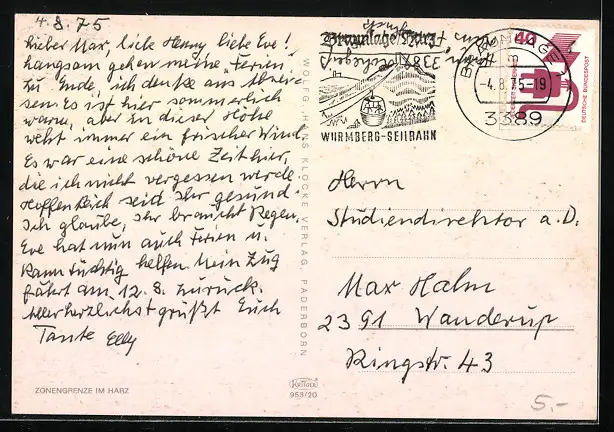 4.8.75
Lieber Max, liebe Henny, liebe Eve!
Langsam gehen meine "Ferien"
zu Ende, ich denke ans Abrei-
sen. Es ist hier sommerlich
warm, aber in dieser Höhe
weht immer ein frischer Wind.
Es war eine schöne Zeit hier,
die ich nicht vergessen werde.
Hoffentlich seid Ihr gesund.
Ich glaube, Ihr braucht Regen.
Eve hat nun auch Ferien u.
kann tüchtig helfen. Mein Zug
fährt am 12.8. zurück.
Allerherzlichst grüßt Euch
Tante Elly
ZONENGRENZE IM HARZ
WOLFG. HANS KLOCKE VERLAG, PADERBORN
Braunlage/Harz
WURMBERG-SEILBAHN
BRAUNLAGE 1
-4.8.75-19
3389
40
DEUTSCHE BUNDESPOST
Herrn
Studiendirektor a.D.
Max Halm
2391 Wanderup
Ringstr. 43
953/20
5.-